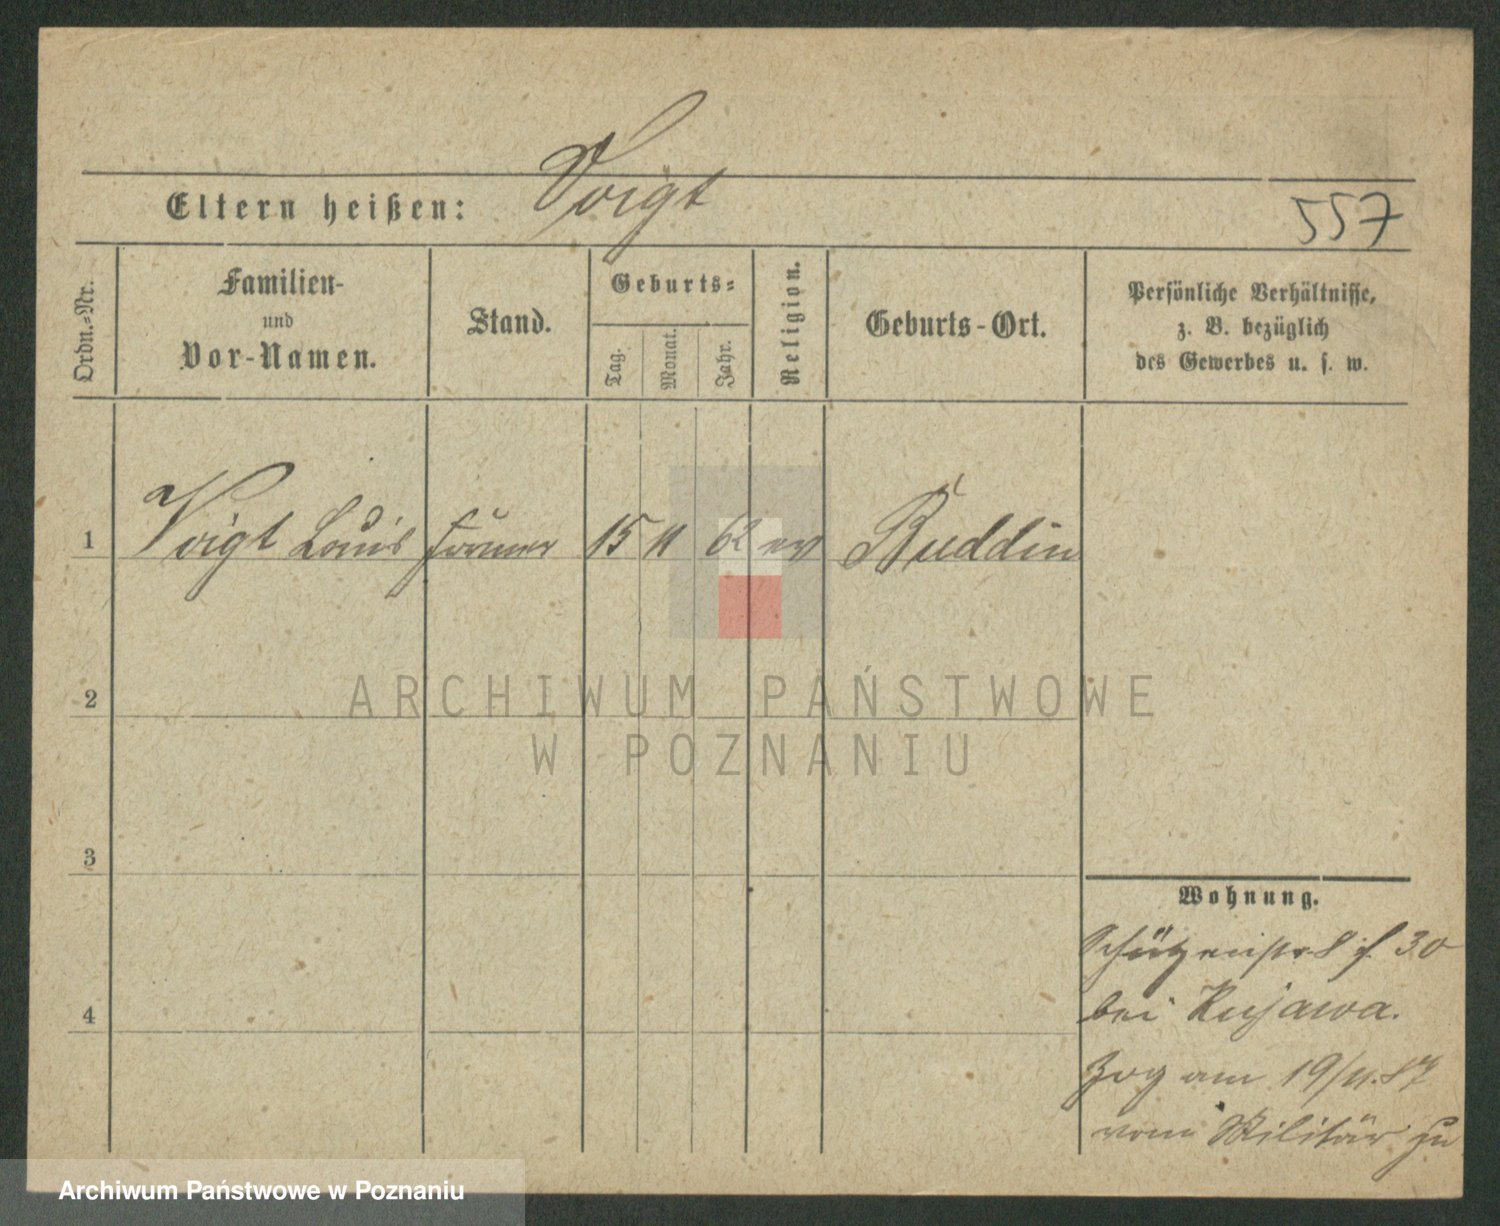 Voigt
Eltern heißen:
557
Ordn.-Nr.
Familien-
und
Vor-Namen.
Stand.
Geburts-
Tag.
Monat.
Jahr.
Religion.
Geburts-Ort.
Persönliche Verhältnisse,
z. B. bezüglich
des Gewerbes u. s. w.
1 Voigt Louis Former 15 11 62 ev Buddin
2
ARCHIWUM PAŃSTWOWE
W POZNANIU
3
Wohnung.
Schützenstr 30
4
bei Kujawa.
Zog am 19/11.87
vom Militär zu
Archiwum Państwowe w Poznaniu